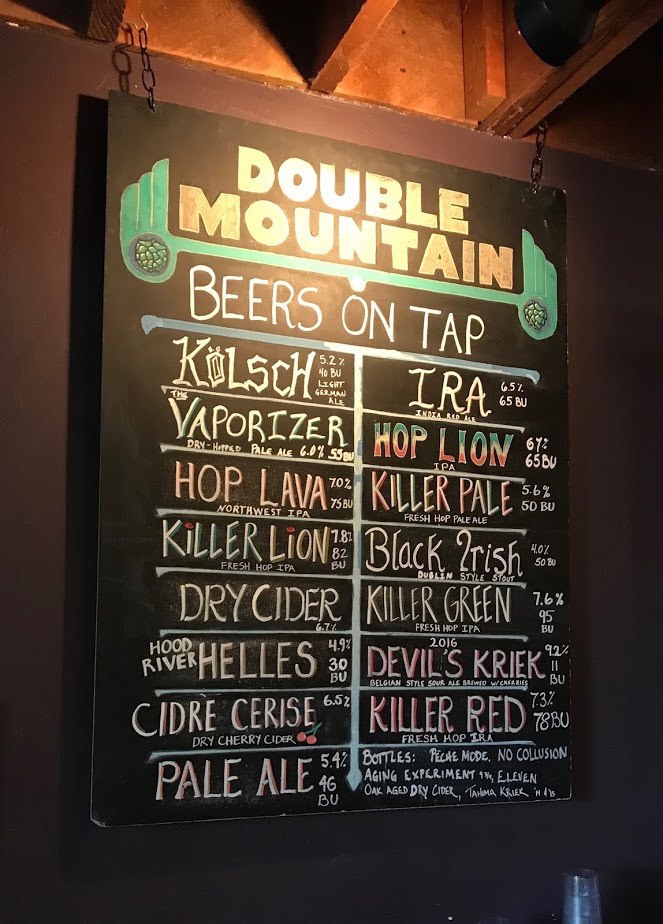 DOUBLE
MOUNTAIN
BEERS ON TAP
KÖLSCH 5.2%
40 BU
LIGHT
GERMAN
ALE
THE
VAPORIZER
DRY-HOPPED PALE ALE 6.0% 55BU
HOP LAVA 7.0%
75 BU
NORTHWEST IPA
KiLLER LiON 7.8%
82
BU
FRESH HOP IPA
DRY CIDER
6.7%
HOOD
RIVER
HELLES 4.9%
30
BU
CIDRE CERISE 6.5%
DRY CHERRY CIDER
PALE ALE 5.4%
46
BU
IRA 6.5%
65 BU
INDIA RED ALE
HOP LION 67%
65BU
IPA
KILLER PALE 5.6%
50 BU
FRESH HOP PALE ALE
Black Irish 4.0%
50 BU
DUBLIN STYLE STOUT
KILLER GREEN 7.6%
95
BU
FRESH HOP IPA
2016
DEVIL'S KRIEK 9.2%
11
BU
BELGIAN STYLE SOUR ALE BREWED W/CHERRIES
KILLER RED 7.3%
78BU
FRESH HOP IRA
BOTTLES: PÊCHE MODE, NO COLLUSION
AGING EXPERIMENT ELEVEN
OAK AGED DRY CIDER, TAHOMA KRIEK